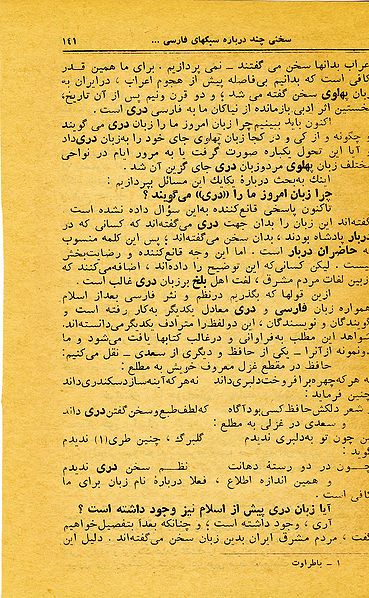 سخنی چند درباره سبکهای فارسی ... ۱۴۱
اعراب بدانها سخن می گفتند ـ نمی پردازیم . برای ما همین قدر
کافی است که بدانیم بی‌فاصله پیش از هجوم اعراب ، درایران به
زبان پهلوی سخن گفته می شد ؛ و دو قرن ونیم پس از آن تاریخ،
نخستین اثر ادبی بازمانده از نیاکان ما به فارسی دری است .
اکنون باید ببینیم چرا زبان امروز ما را زبان دری می گویند
و چگونه و از کی و در کجا زبان پهلوی جای خود را به‌زبان دری‌داد
و آیا این تحول یکباره صورت گرفت یا به مرور ایام در نواحی
مختلف زبان پهلوی مرد و زبان دری جای گزین آن شد .
اینك به‌بحث درباره یکایك این مسائل بپردازیم :
چرا زبان امروز ما را ((دری)) می‌گویند ؟
تاکنون پاسخی قانع‌کننده به‌این سؤال داده نشده است
گفته‌اند این زبان را بدان جهت دری می‌گفته‌اند که کسانی که در
دربار پادشاه بودند ، بدان سخن می‌گفته‌اند ؛ پس این کلمه منسوب
به حاضران دربار است . اما این وجه قانع‌کننده و رضایت‌بخش
نیست . لیکن کسانی‌که این توضیح را داده‌اند ، اضافه‌می‌کنند که
ازبین لغات مردم مشرق ، لغت اهل بلخ برزبان دری غالب است .
ازین قولها که بگذریم درنظم و نثر فارسی بعداز اسلام
همواره زبان فارسی و دری معادل یکدیگر به‌کار رفته است و
گویندگان و نویسندگان ، این دولفظ‌را مترادف یکدیگرمی‌دانسته‌اند.
شواهد این مطلب به‌فراوانی و درغالب کتابها یافت می‌شود و ما
دونمونه ازآنرا ـ یکی از حافظ و دیگری از سعدی ـ نقل می‌کنیم:
حافظ در مقطع غزل معروف خویش به مطلع :
نه هرکه‌چهره‌برافروخت‌دلبری‌داند نه‌هرکه‌آینه‌سازدسکندری‌داند
چنین فرماید :
ز شعر دلکش‌حافظ‌کسی‌بودآگاه که‌لطف‌طبع‌وسخن‌گفتن‌دری داند
و سعدی در غزلی به مطلع :
من چون تو به‌دلبری ندیدم گلبرگ ، چنین طری(۱) ندیدم
گوید :
چـــون در دو رستهٔ دهانت نظــم سخن دری ندیدم
و همین اندازه اطلاع ، فعلا درباره نام زبان برای ما
کافی است .
آیا زبان دری پیش از اسلام نیز وجود داشته است ؟
آری ، وجود داشته است ؛ و چنانکه بعداً بتفصیل‌خواهیم
گفت ، مردم مشرق ایران بدین زبان سخن می‌گفته‌اند . دلیل این
۱ ـ باطراوت